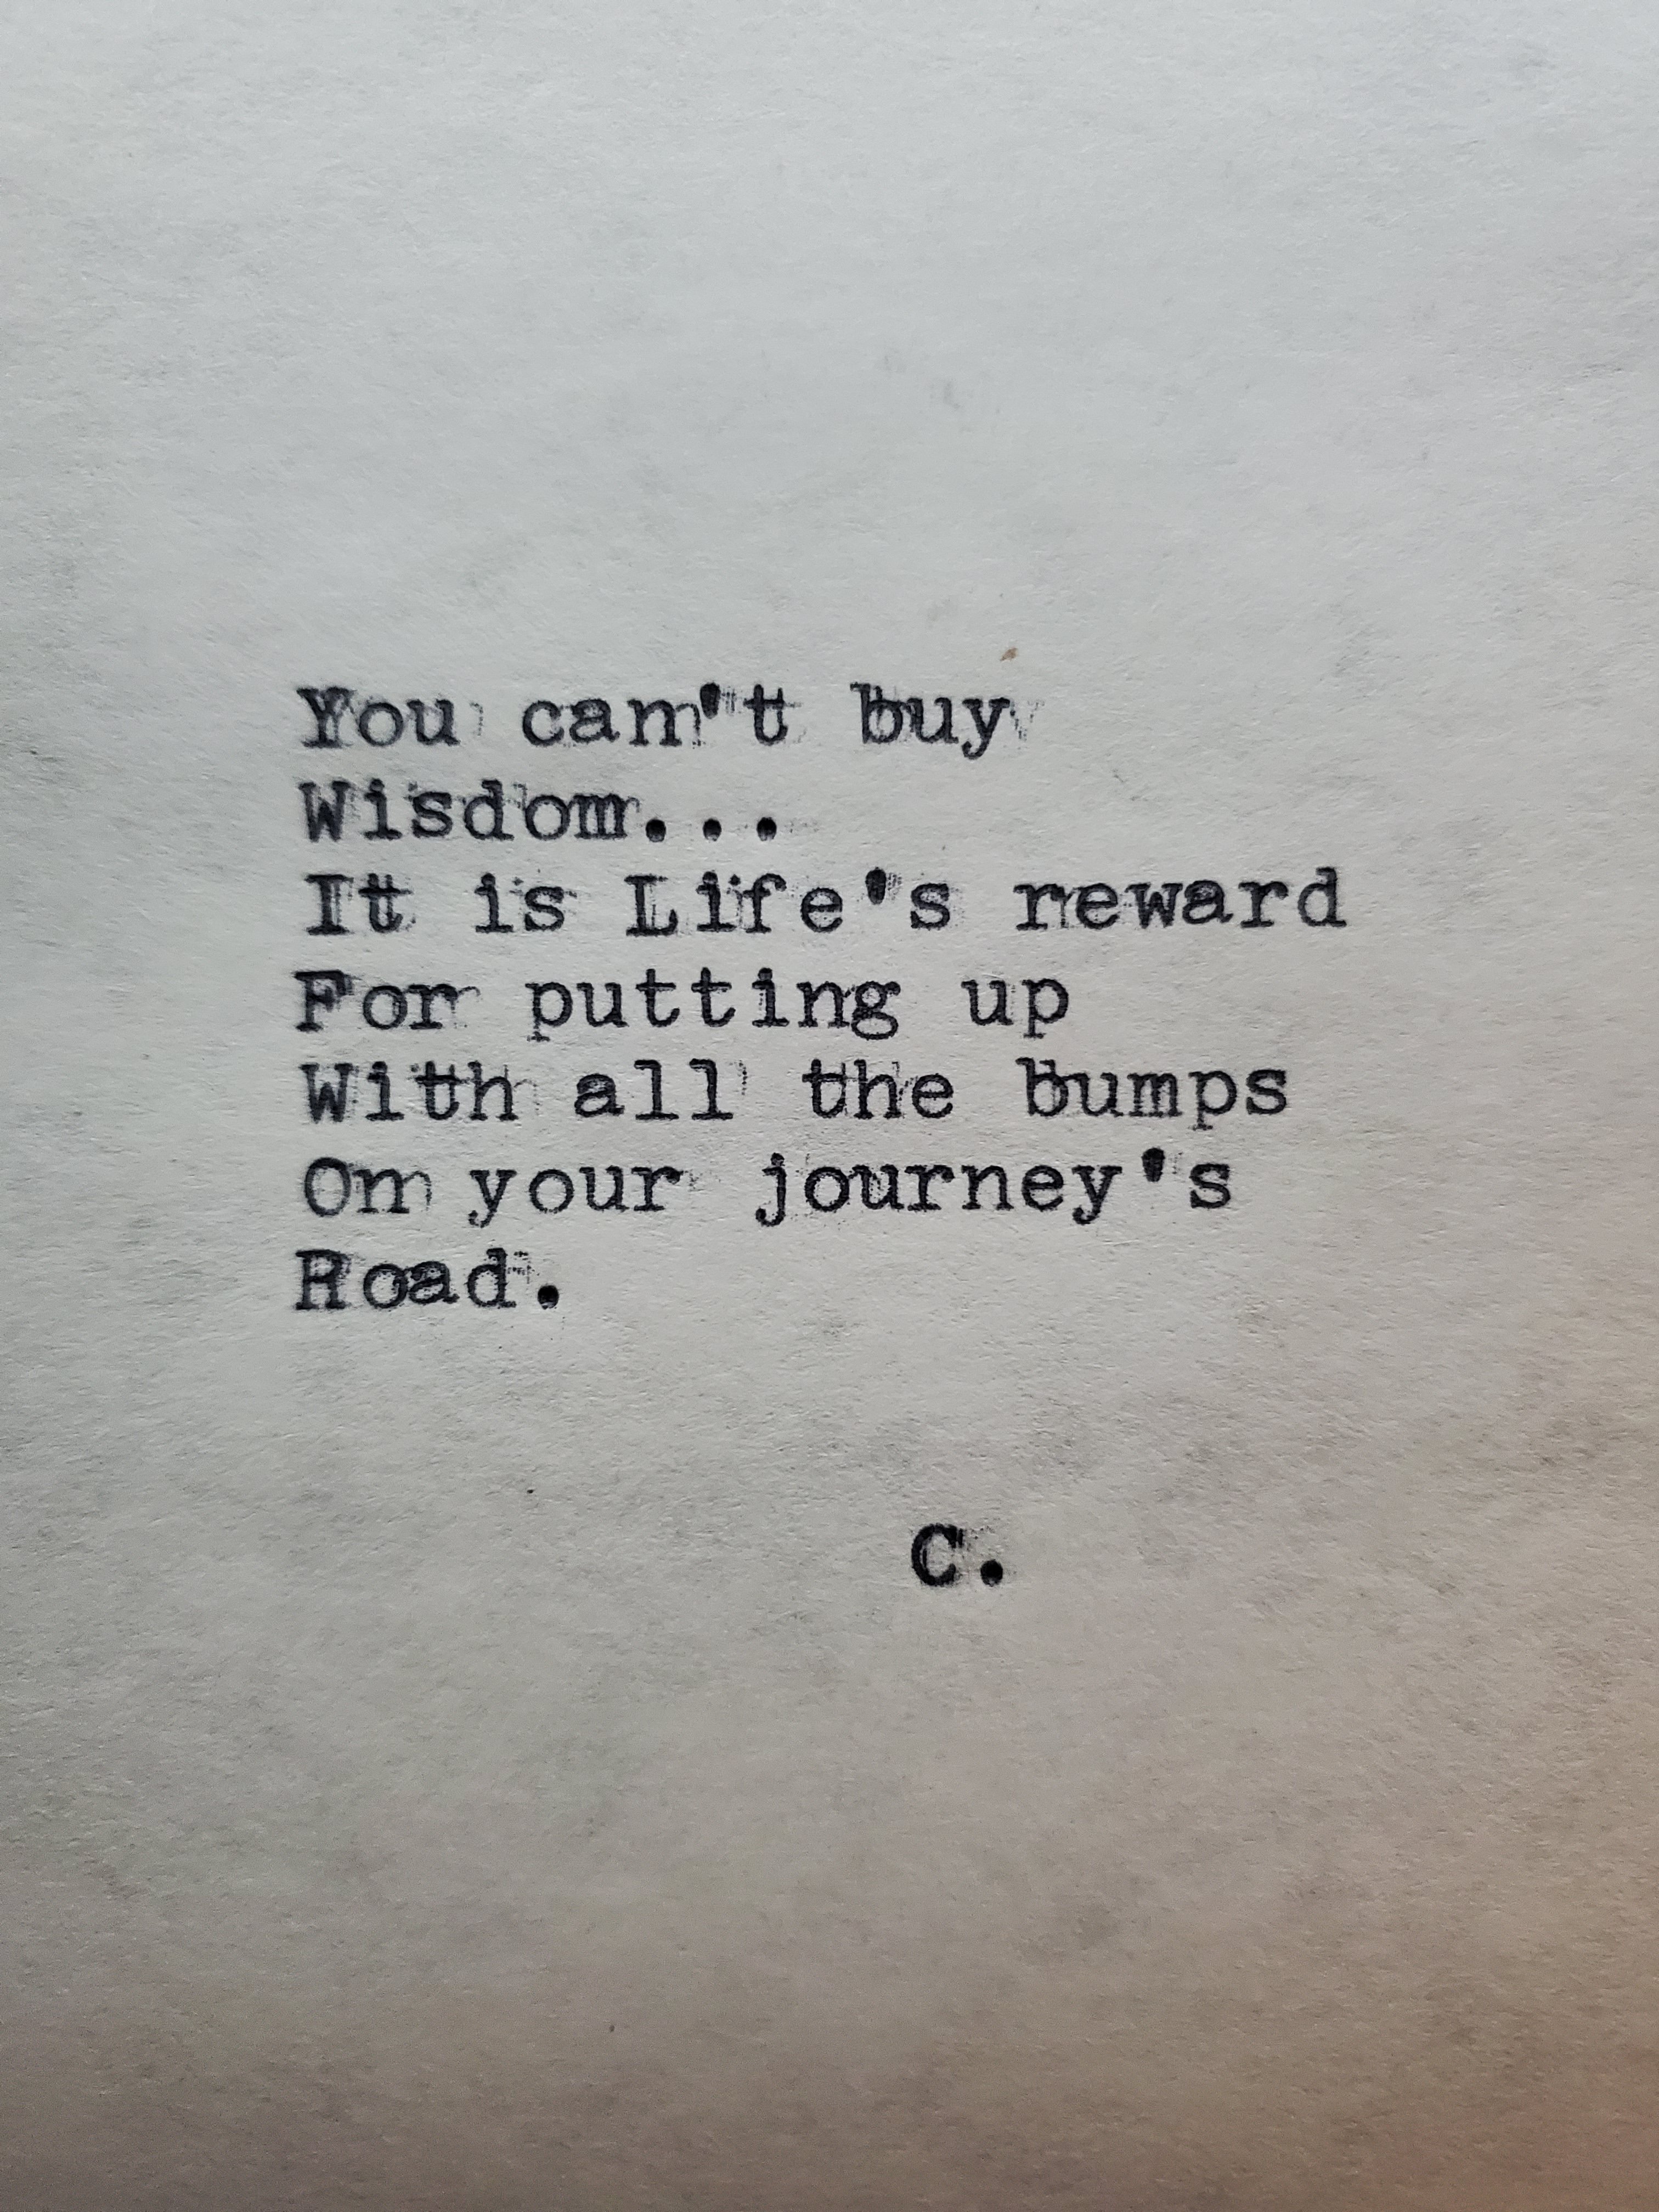 You can't buy
Wisdom...
It is Life's reward
For putting up
With all the bumps
On your journey's
Road.
C.